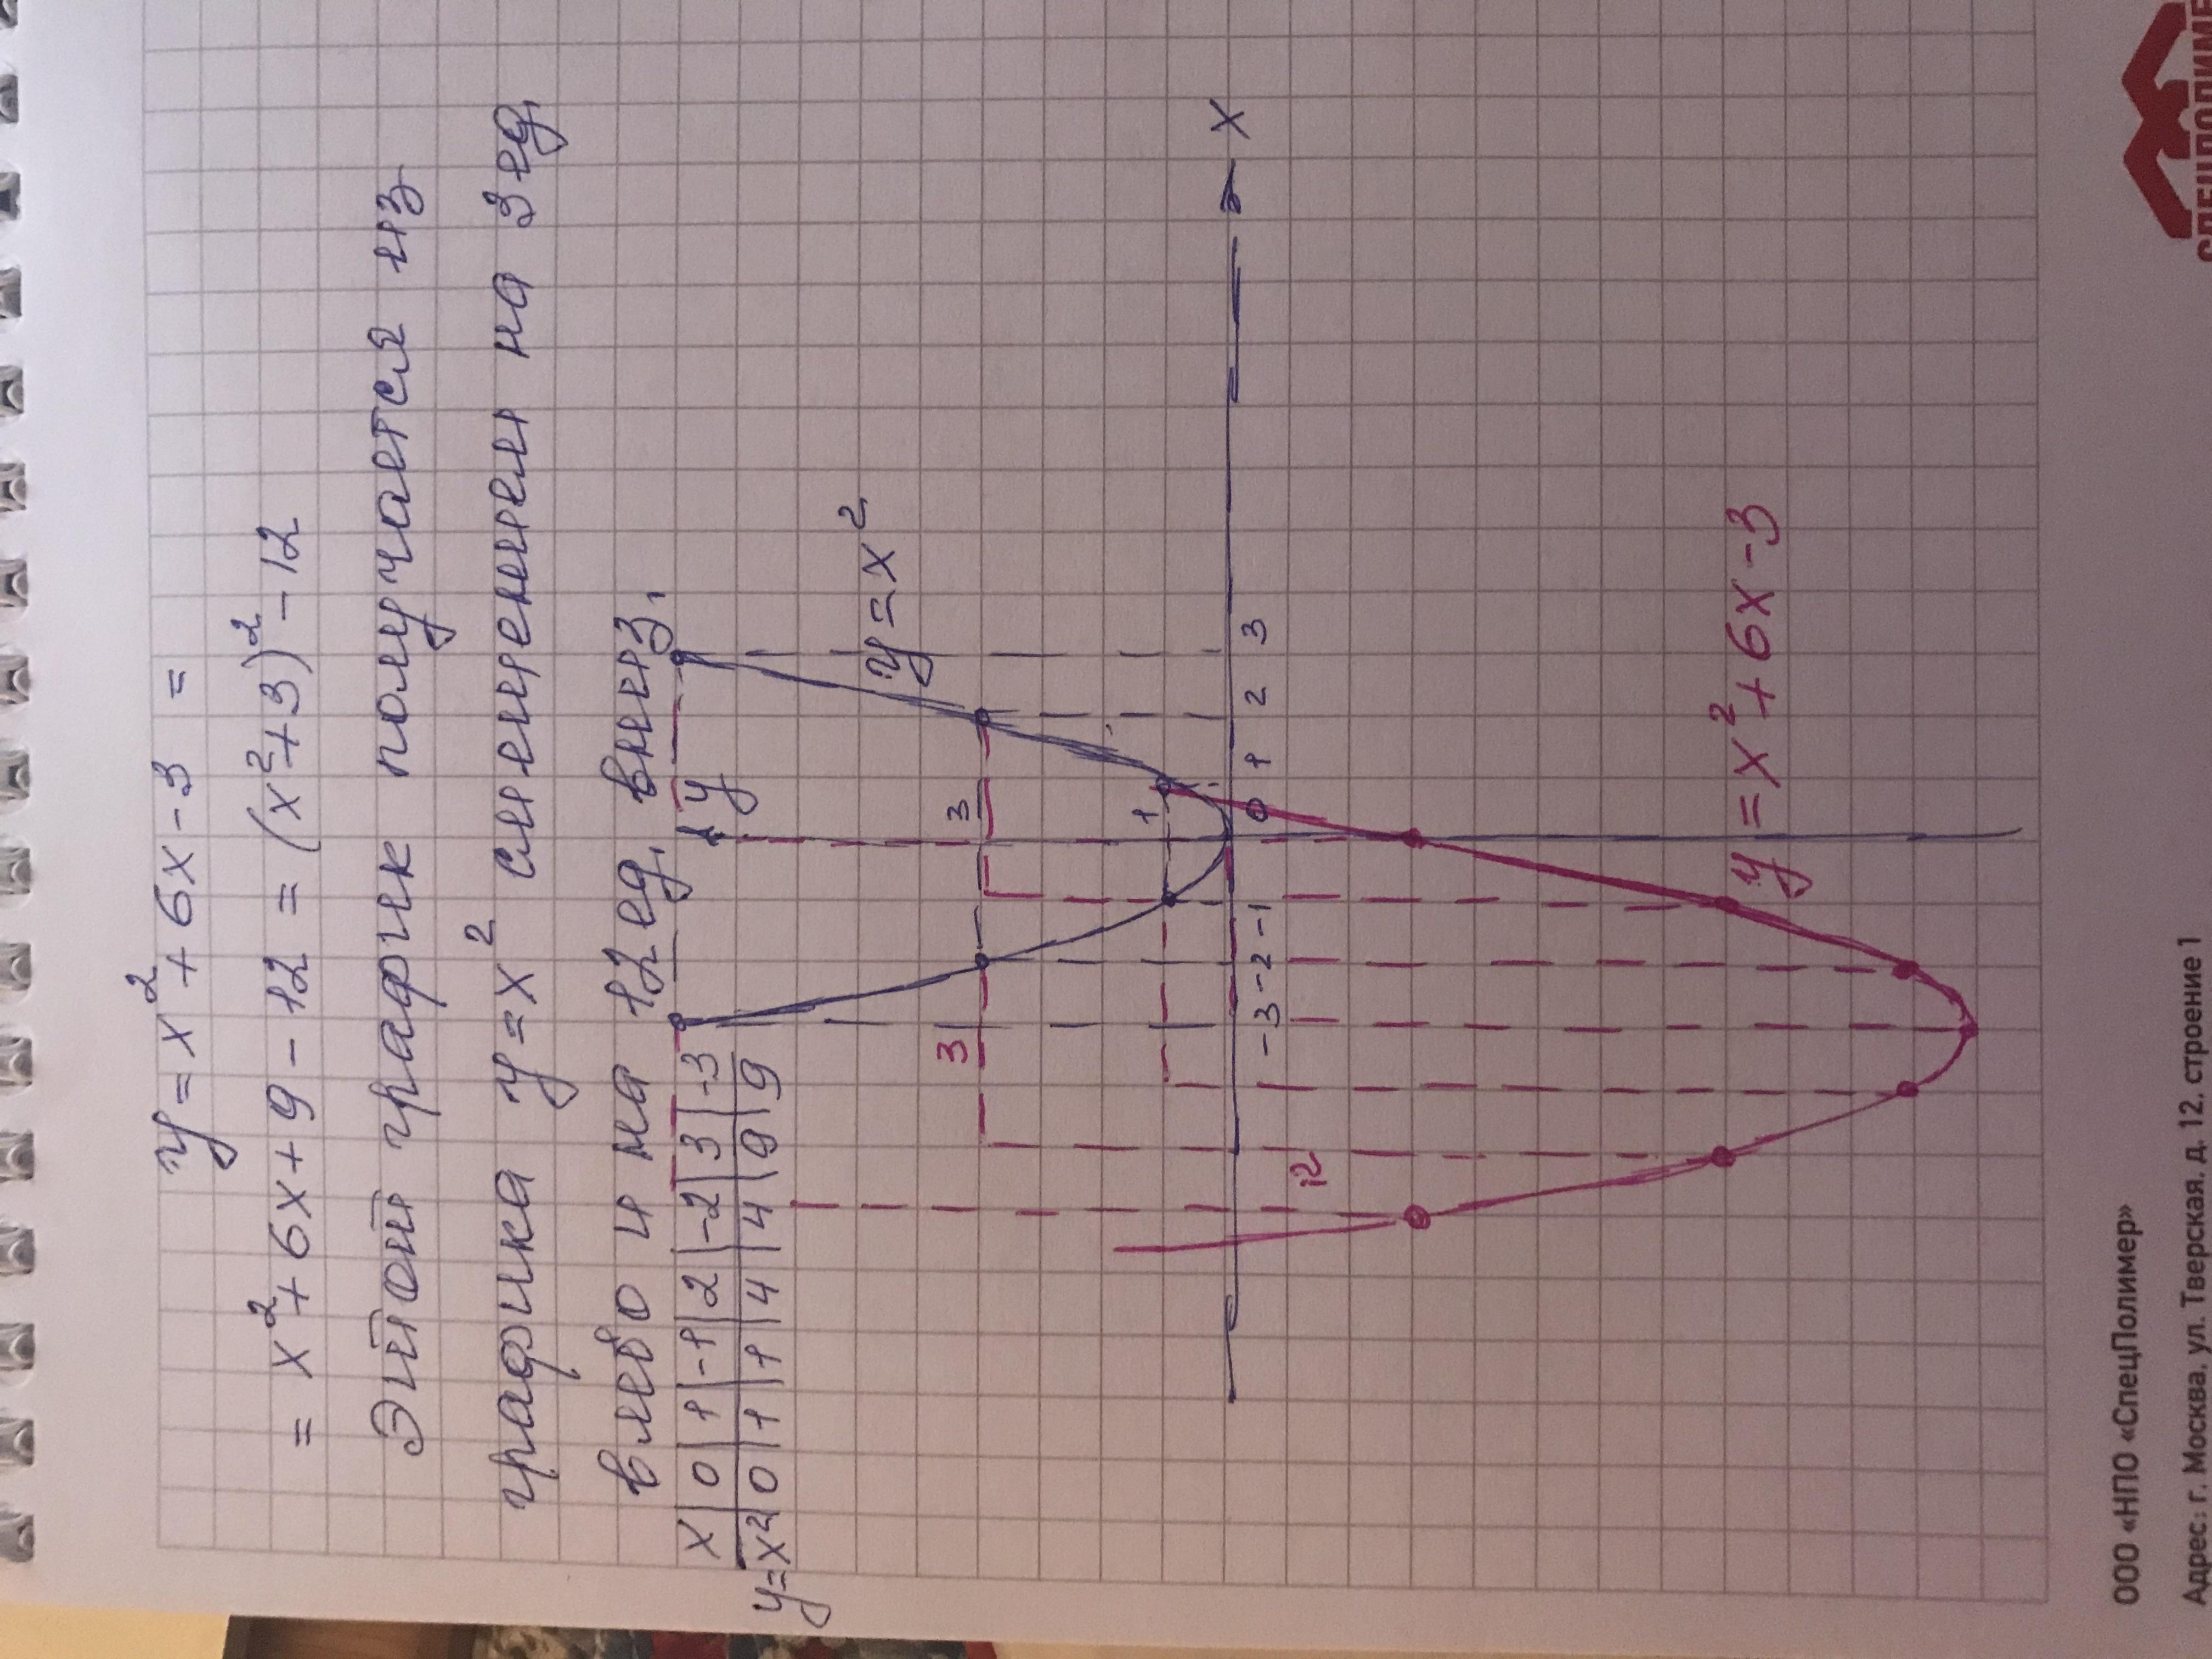 y = x² + 6x - 3 =
= x² + 6x + 9 - 12 = (x² + 3)² - 12
Этот график получается из
графика y = x² смещением на 3 ед,
влево и на 12 ед, вниз,
x | 0 | 1 | -1 | 2 | -2 | 3 | -3
y=x² | 0 | 1 | 1 | 4 | 4 | 9 | 9
y
y = x²
3
3
1
x
-3 -2 -1 0 1 2 3
12
y = x² + 6x - 3
ООО «НПО «СпецПолимер»
Адрес: г. Москва, ул. Тверская, д. 12, строение 1
СПЕЦПОЛИМЕР